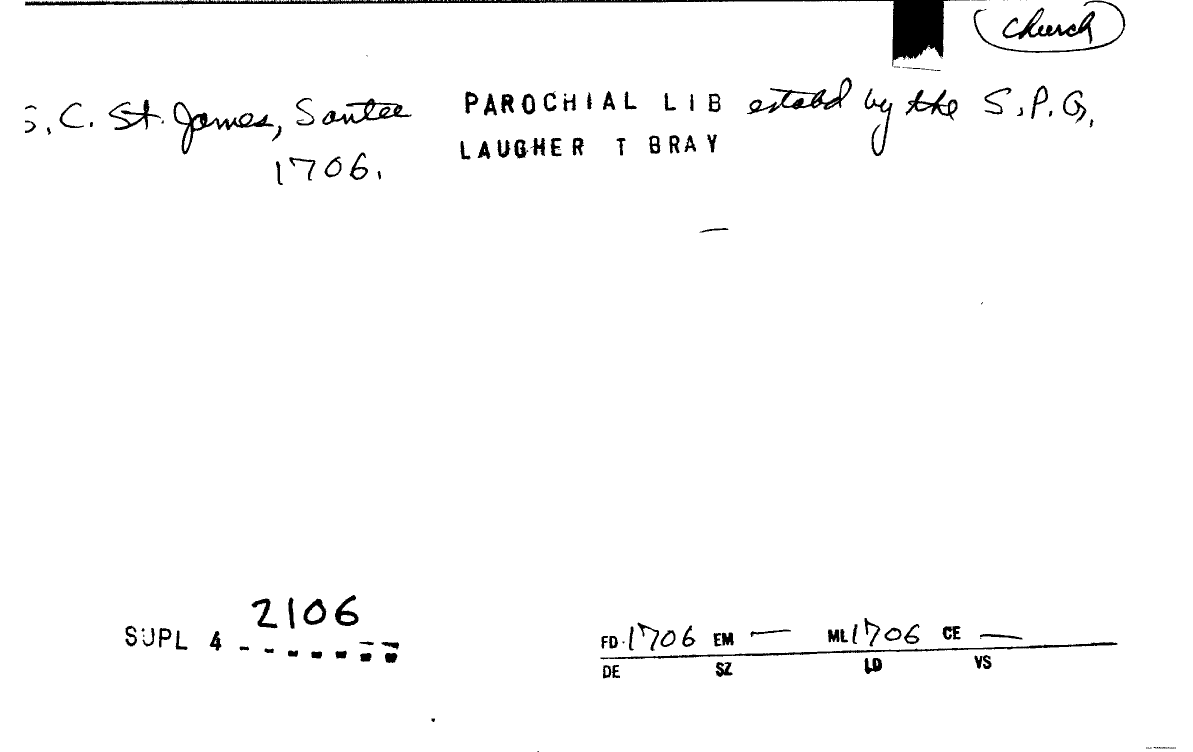 Church
S. C. St. James, Santee PAROCHIAL LIB estabd by the S.P.G.
1706. LAUGHER T BRAY
2106
SUPL 4
FD 1706 EM — ML 1706 CE —
DE SZ LD VS